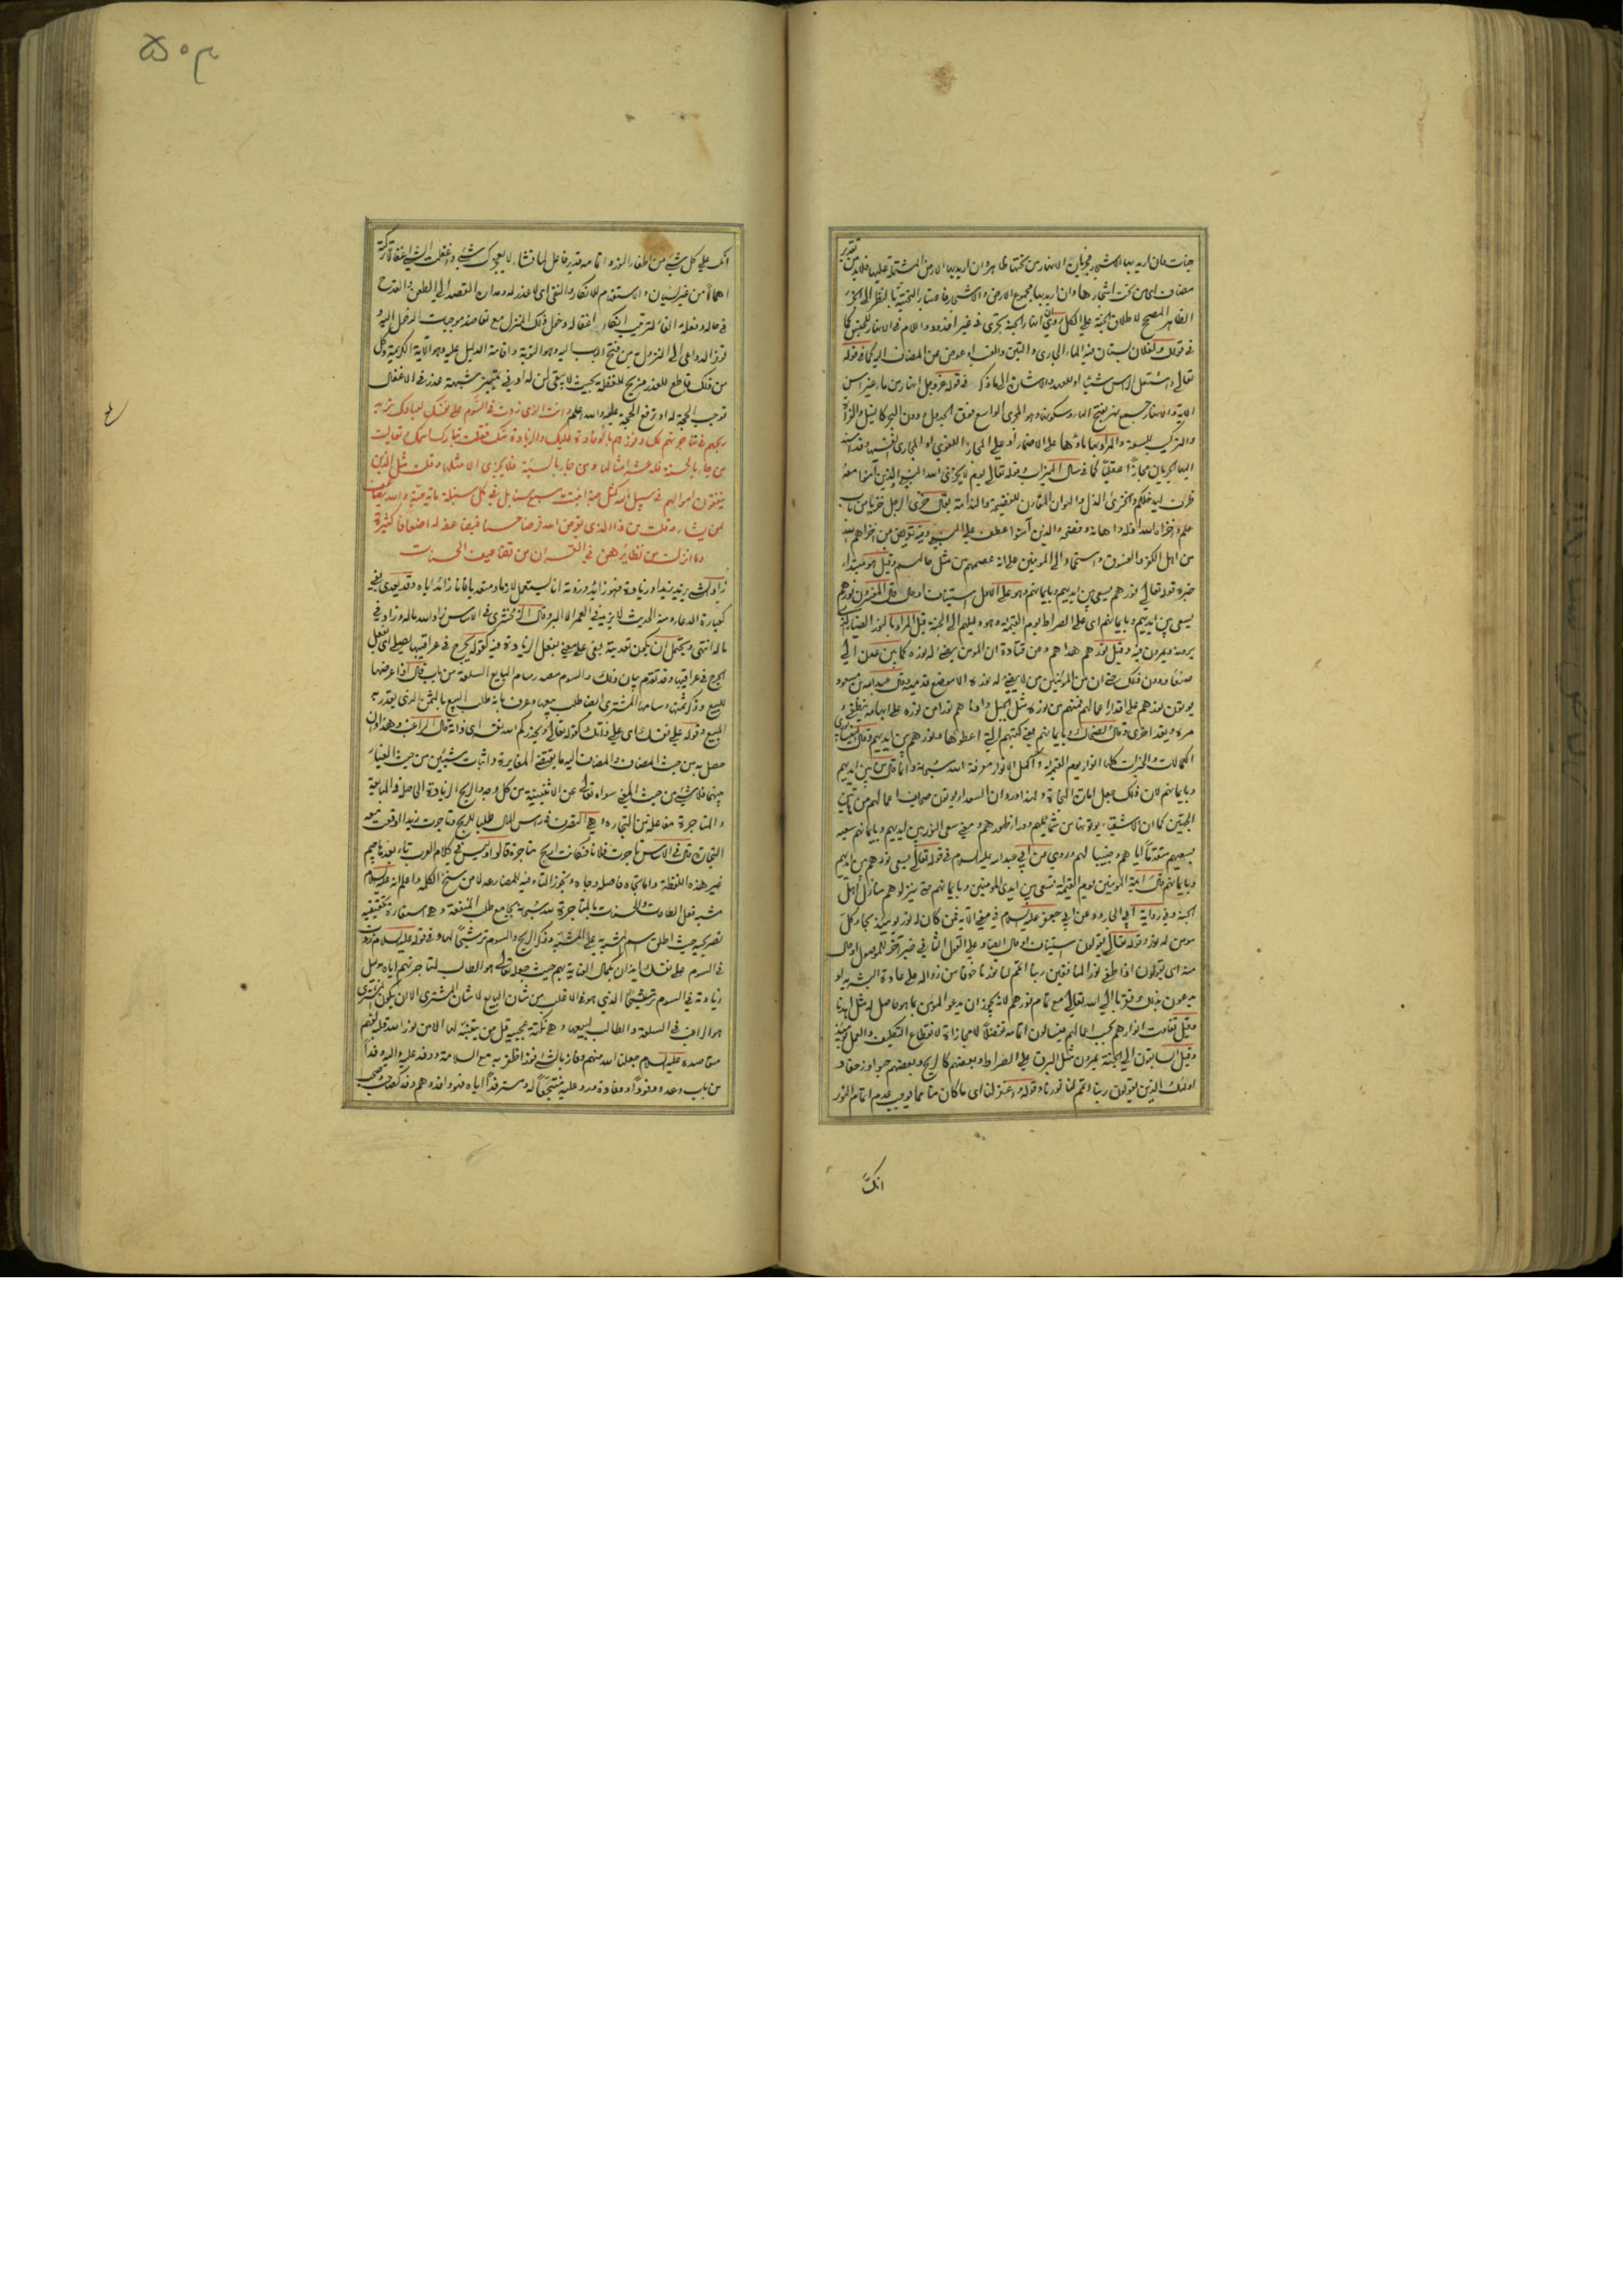 جنات فان اريد بها الاشجار فجريان الانهار من تحتها ظاهر وان اريد بها الارض المشتملة عليها فلا بد من تقدير
مضاف اى من تحت اشجارها وان اريد بها مجموع الارض والاشجار فاعتبار التحتية بالنظر الى الجزء
الظاهر المصحح لاطلاق الجنة على الكل وروى ان انهار الجنة تجرى فى غير اخدود واللام فى الانهار للجنس كما
فى قولك لفلان بستان فيه الماء الجارى والتين والعنب او عوض عن المضاف اليه كما فى قوله
تعالى واشتعل الراس شيبا او للعهد والاشارة الى ما ذكر فى قوله عز وجل انهار من ماء غير اسن
الاية والانهار جمع نهر بفتح الهاء وسكونها وهو المجرى الواسع فوق الجدول ودون البحر كالنيل والفرات
والتركيب للسعة والمراد بها ماؤها على الاضمار او على المجاز اللغوى او المجارى انفسها وقد اسند
اليها الجريان مجازا عقليا كما فى سال الميزاب وقوله تعالى يوم لا يخزى الله النبى والذين امنوا معه
ظرف ليدخلكم والخزى الذل والهوان المقارن للفضيحة والندامة يقال خزى الرجل خزيا من باب
علم واخزاه الله اذله واهانه وفضحه والذين آمنوا عطف على النبى وفيه تعريض من اخزاهم الله
من اهل الكفر والفسوق واستحماد الى المومنين على انه عصمهم من مثل حالهم وقيل هو مبتدا
خبره قوله تعالى نورهم يسعى بين ايديهم وبايمانهم وهو على الاول استيناف او حال قال المفسرون نورهم
يسعى بين ايديهم وبايمانهم اى على الصراط يوم القيمة وهو دليلهم الى الجنة قيل المراد بالنور الضياء الذى
يرونه ويمرون فيه وقيل نورهم هداهم وعن قتادة ان المومن يضىء له نوره كما بين عدن الى
صنعا ودون ذلك حتى ان من المؤمنين من لا يضىء له نوره الا موضع قدميه وقال عبد الله بن مسعود
يوتون نورهم على قدر اعمالهم فمنهم من نوره مثل الجبل وادناهم نورا من نوره على ابهامه يطفىء
مرة ويقد اخرى وقال الضحاك وبايمانهم يعنى كتبهم التى اعطوها ونورهم بين ايديهم وقال
الكمالات والخيرات كلها انوار يوم القيمة واكمل الانوار معرفة الله سبحانه وانما قال من بين ايديهم
وبايمانهم لان ذلك جعل امارة النجاة ولهذا ورد ان السعداء يوتون صحايف اعمالهم من هاتين
الجهتين كما ان الاشقياء يوتونها من شمايلهم ووراء ظهورهم ومعنى سعى النور بين ايديهم وبايمانهم سعيه
بسعيهم متقدما اياهم وجنيبا لهم وروى عن ابى عبد الله عليه السلام فى قوله تعالى يسعى نورهم بين ايديهم
وبايمانهم قال ائمة المومنين يوم القيمة تسعى بين ايدى المومنين وبايمانهم حتى ينزلوهم منازل اهل
الجنة وفى رواية ابى الجارود عن ابى جعفر عليه السلام فى معنى الاية فمن كان له نور يومئذ نجا وكل
مومن له نور وقوله تعالى يقولون استيناف او حال ايضا وعلى القول الثانى خبر آخر للموصول او حال
منه اى يقولون اذا طفئ نور المنافقين ربنا اتمم لنا نورنا خوفا من زواله على عادة البشرية او
يدعون بذلك تقربا الى الله تعالى مع تمام نورهم لانه يجوز ان يدعو المومن بما هو حاصل له مثل اهدنا
وقيل تتفاوت انوارهم بحسب اعمالهم فيسالون اتمامه تفضلا لا مجازاة لانقطاع التكليف والعمل يومئذ
وقيل السابقون الى الجنة يمرون مثل البرق على الصراط وبعضهم كالريح وبعضهم حبوا وزحفا و
اولئك الذين يقولون ربنا اتمم لنا نورنا وقوله واغفر لنا اى ما كان منا مما يوجب عدم اتمام النور
انك
انك على كل شىء من اطفاء النور واتمامه قدير فاعل لما تشاء لا يعجزك شىء واغفلت الشىء اغفالا تركته
اهمالا من غير نسيان والاستفهام للانكار والنفى اى لا عذر له ومدار القصد الى الطعن والقدح
فى حاله وفعله الفاء لترتيب انكار اغفاله دخول ذلك المنزل مع تعاضد موجبات الدخول اليه و
توفر الدواعى الى النزول به من فتح الباب اليه وهو التوبة واقامة الدليل عليه وهو الاية الكريمة وكل
من ذلك قاطع للعذر مزيح للغفلة بحيث لا يبقى لمن له ادنى تمييز شبهة عذر فى الاغفال
توجب الحجة له او ترفع الحجة عليه والله اعلم وانت الذى زدت فى السوم على نفسك لعبادك تريد
ربحهم فى متاجرتهم لك وفوزهم بالوفادة عليك والزيادة منك فقلت تبارك اسمك وتعاليت
من جاء بالحسنة فله عشر امثالها ومن جاء بالسيئة فلا يجزى الا مثلها وقلت مثل الذين
ينفقون اموالهم فى سبيل الله كمثل حبة انبتت سبع سنابل فى كل سنبلة ماية حبة والله يضاعف
لمن يشاء وقلت من ذا الذى يقرض الله قرضا حسنا فيضاعفه له اضعافا كثيرة
وما انزلت من نظائرهن فى القران من تضاعيف الحسنات
زاد الشىء يزيد زيدا وزيادة فهو زائد وزدته انا يستعمل لازما ومتعديا فانا زائد اياه وقد يعدى بفى
كعبارة الدعاء ومنه الحديث لا يزيد فى العمر الا البر وقال الزمخشرى فى الاساس زاد الله ماله وزاد فى
ماله انتهى ويحتمل ان يكون تعديته بفى على معنى بفعل الزيادة فيه كقوله يجرح فى عراقيبها نصلى اى يفعل
الجرح فى عراقيبها وقد تقدم بيان ذلك والسوم مصدر سام البايع السلعة من باب قال اذا عرضها
للبيع وذكر ثمنها وسامها المشترى ايضا طلب بيعها وعرف بانه طلب البيع بالثمن الذى يقدر به
المبيع وقوله على نفسك اى على ذاتك كقوله تعالى ويحذركم الله نفسه اى ذاته قال الراغب وهذا وان
حصل به من حيث المضاف والمضاف اليه ما يقتضى المغايرة واثبات شيئين من حيث العبارة
فلا شىء من حيث المعنى سواه تعالى عن الاثنينية من كل وجه والربح الزيادة الحاصلة فى المبايعة
والمتاجرة مفاعلة من التجارة وهى التصرف فى راس المال طلبا للربح وتاجرت زيدا اوقعت معه
التجارة قال فى الاساس تاجرت فلانا فكانت اربح متاجرة قالوا وليس فى كلام العرب تاء بعدها جيم
غير هذه اللفظة واما تجاه فاصل وجاه وتجوز التاء فيه للمضارعة لا من سنخ الكلمة واعلم انه عليه السلام
شبه فعل الطاعات والحسنات بالمتاجرة لله سبحانه بجامع طلب المنفعة وهى استعارة تحقيقية
تصريحية حيث اطلق اسم المشبه به على المشبه وذكر الربح والسوم ترشيحا لها وفى قوله عليه السلام زدت
فى السوم على نفسك ايذان بكمال العناية بهم حيث جعله تعالى هو الطالب لمتاجرتهم اياه وجعل
زيادته فى السوم ترشيحا الذى هو فى الاغلب من شان البايع لا شان المشترى الا ان يكون المشترى
هو الراغب فى السلعة والطالب لبيعها وهى نكتة عجيبة قل من يتنبه لها الا من نور الله قلبه لفهم
مقاصده عليه السلام جعلنا الله منهم وفاز بالشىء فوزا ظفر به مع السلامة ووفد عليه واليه وفدا
من باب وعد ووفودا ووفادة ورد عليه منتجعا له ومسترفدا اياه فهو وافد وهم وفد كصاحب وصحب